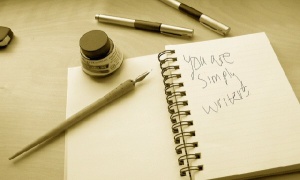 you are
simply
writers